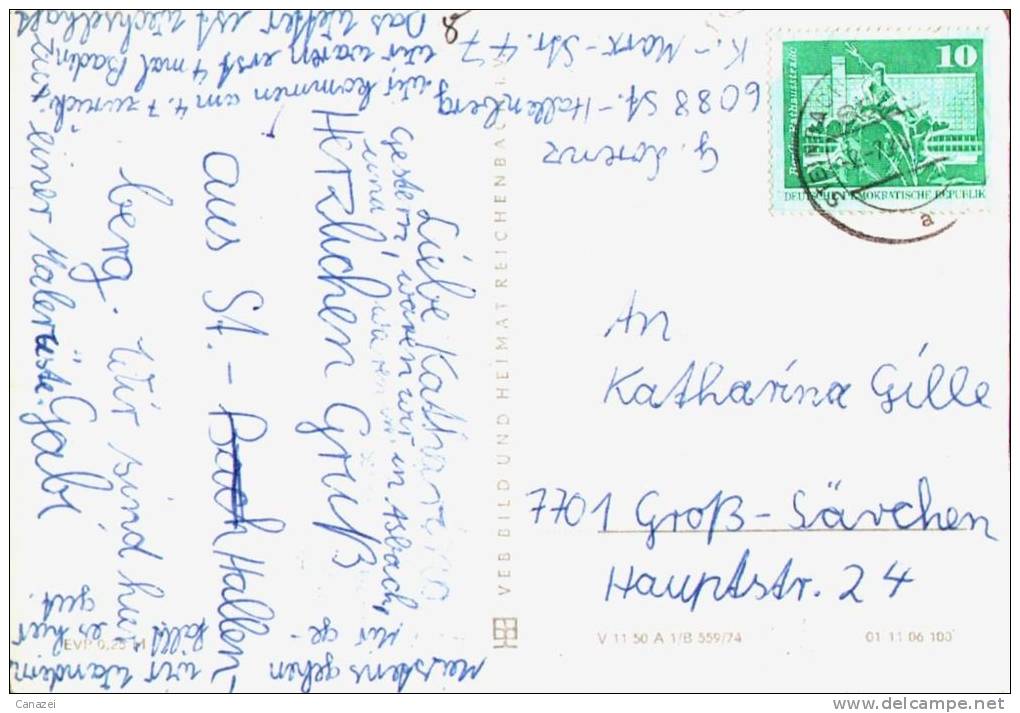 Liebe Katharina
Gestern waren wir in Asbach,
Herzlichen Gruß
aus St. - Hallen
berg. Wir sind hier
mit einer Malerin
Gabi
meistens gehen
wir wandern
Mir ge-
fällt es hier
gut.
Wir kommen am 4.7 zurück.
Wir waren erst 4 mal Baden
Das Wetter ist wechselhaft
G. Lorenz
6088 St.-Hallenberg
K.-Marx-Str. 47
VEB BILD UND HEIMAT REICHENBACH
10
Berlin Rathausstraße
DEUTSCHE DEMOKRATISCHE REPUBLIK
a
An
Katharina Gille
7701 Groß-Särchen
Hauptstr. 24
EVP 0,25 M
V 11 50 A 1/B 559/74
01 11 06 100
Canazei
delcampe.net